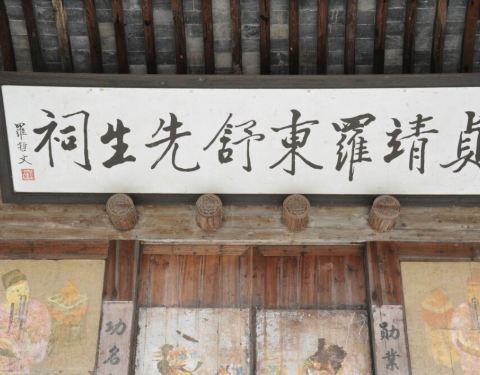 貞靖羅東舒先生祠
羅哲文
勛業
功名